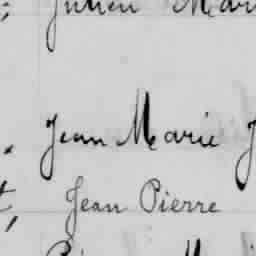 Julien Mari
Jean Marie J
Jean Pierre